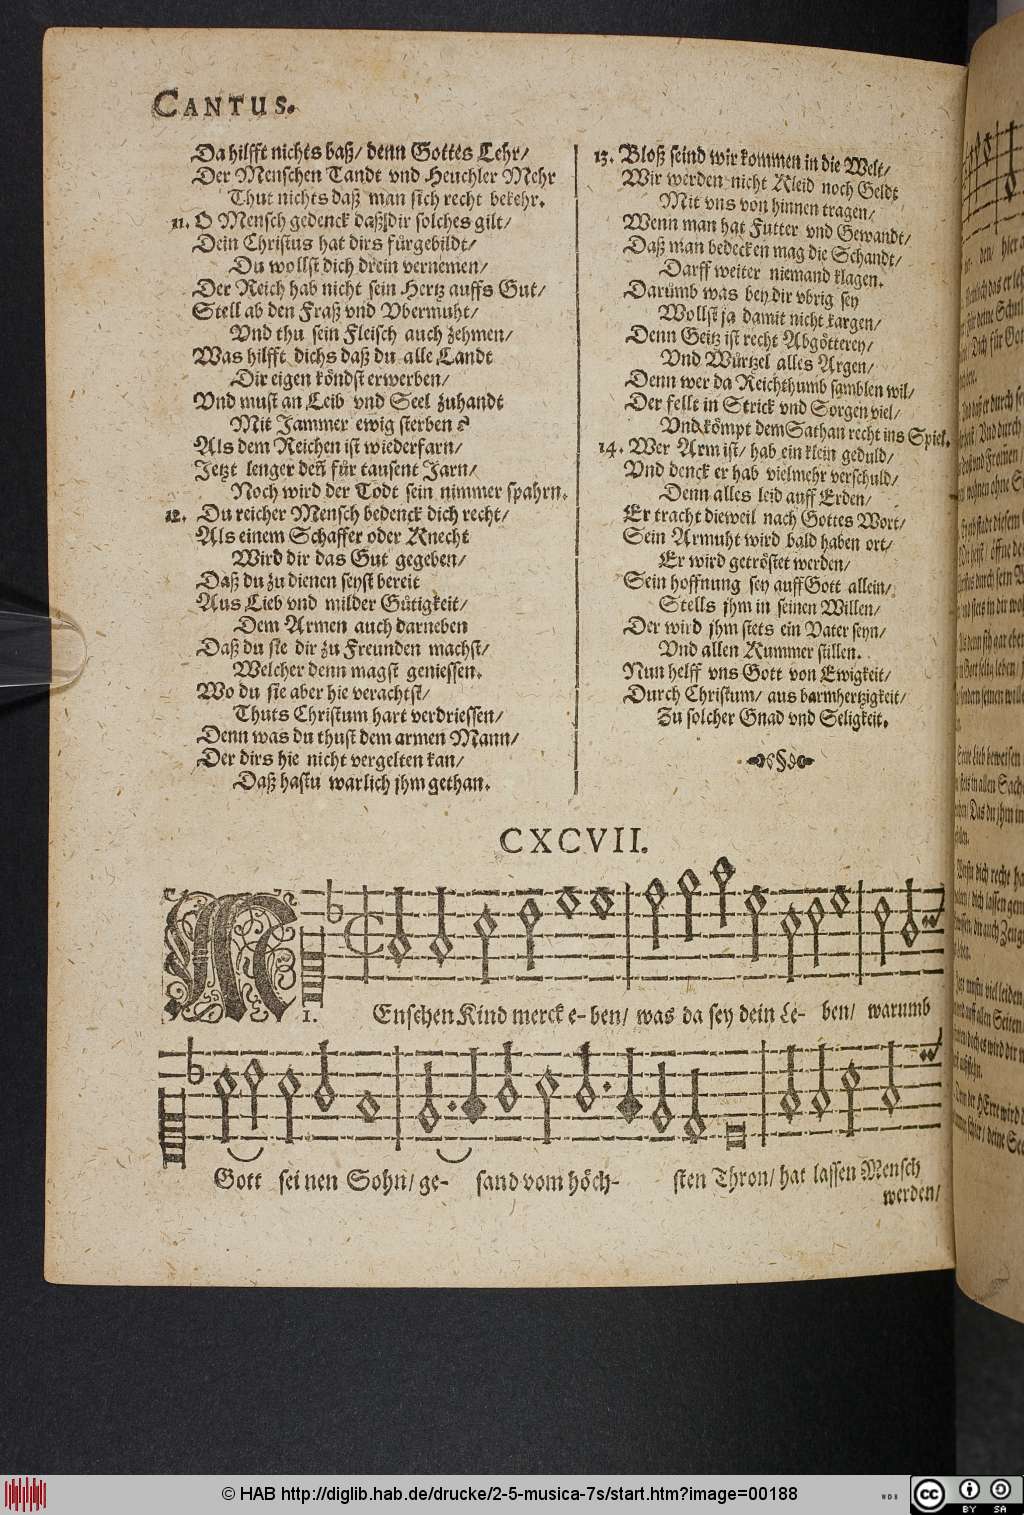 CANTUS.
Da hilfft nichts baß/ denn Gottes Lehr/
Der Menschen Tandt vnd Heuchler Mehr
Thut nichts daß man sich recht bekehr.
11. O Mensch gedenck daß dir solches gilt/
Dein Christus hat dirs fürgebildt/
Du wollst dich drein vernemen/
Der Reich hab nicht sein Hertz auffs Gut/
Stell ab den Fraß vnd Vbermuht/
Vnd thu sein Fleisch auch zehmen/
Was hilfft dichs daß du alle Landt
Dir eigen köndst erwerben/
Vnd must an Leib vnd Seel zuhandt
Mit Jammer ewig sterben?
Als dem Reichen ist wiederfarn/
Jetzt lenger deñ für tausent Jarn/
Noch wird der Todt sein nimmer spahrn.
12. Du reicher Mensch bedenck dich recht/
Als einem Schaffer oder Knecht
Wird dir das Gut gegeben/
Daß du zu dienen seyst bereit
Aus Lieb vnd milder Gütigkeit/
Dem Armen auch darneben
Daß du sie dir zu Freunden machst/
Welcher denn magst geniessen.
Wo du sie aber hie verachtst/
Thuts Christum hart verdriessen/
Denn was du thust dem armen Mann/
Der dirs hie nicht vergelten kan/
Daß hastu warlich jhm gethan.
13. Bloß seind wir kommen in die Welt/
Wir werden nicht Kleid noch Geldt
Mit vns von hinnen tragen/
Wenn man hat Futter vnd Gewandt/
Daß man bedecken mag die Schandt/
Darff weiter niemand klagen.
Darümb was bey dir vbrig sey
Wollst ja damit nicht kargen/
Denn Geitz ist recht Abgötterey/
Vnd Würtzel alles Argen/
Denn wer da Reichthumb samblen wil/
Der fellt in Strick vnd Sorgen viel/
Vnd kömpt dem Sathan recht ins Spiel.
14. Wer Arm ist/ hab ein klein geduld/
Vnd denck er hab vielmehr verschuld/
Denn alles leid auff Erden/
Er tracht dieweil nach Gottes Wort/
Sein Armuht wird bald haben ort/
Er wird getröstet werden/
Sein hoffnung sey auff Gott allein/
Stells jhm in seinen Willen/
Der wird jhm stets ein Vater seyn/
Vnd allen Kummer stillen.
Nun helff vns Gott von Ewigkeit/
Durch Christum/ aus barmhertzigkeit/
Zu solcher Gnad vnd Seligkeit.
CXCVII.
1. MEnschen Kind merck e- ben/ was da sey dein Le- ben/ warumb
Gott sei nen Sohn/ ge- sand vom höch- sten Thron/ hat lassen Mensch
werden/
© HAB http://diglib.hab.de/drucke/2-5-musica-7s/start.htm?image=00188
WDB
cc BY SA